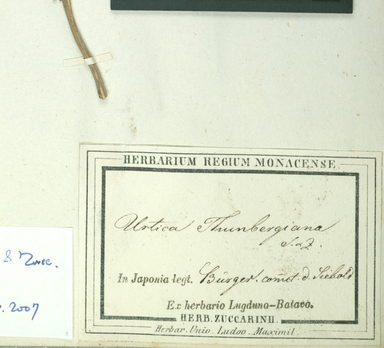 HERBARIUM REGIUM MONACENSE.
Urtica Thunbergiana
S. & Z.
In Japonia legt. Bürger. comt. d. Siebold
Ex herbario Lugduno-Batavo.
HERB. ZUCCARINII.
Herbar. Univ. Ludov. Maximil.
& Zucc.
2007